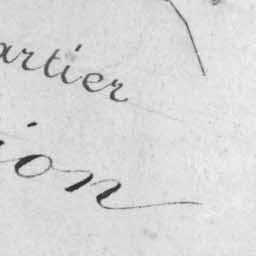 artier
ion